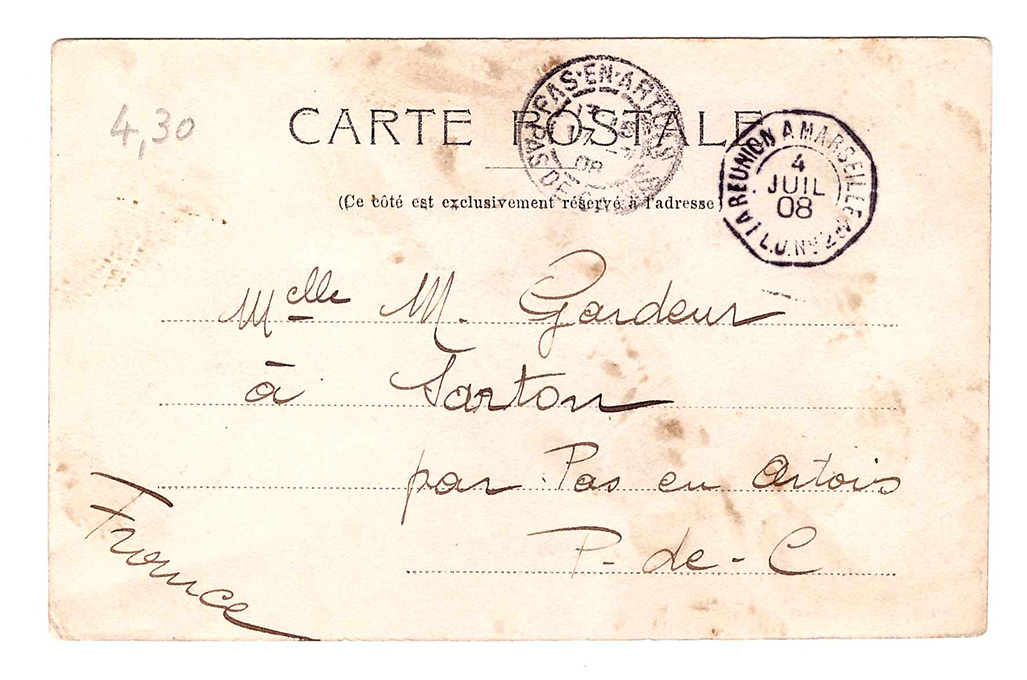 4,30
CARTE POSTALE
(Ce côté est exclusivement réservé à l'adresse)
PAS-EN-ARTOIS
PAS DE
08
LA REUNION A MARSEILLE
L.U.N°2
4
JUIL
08
Melle M. Gardeur
à Sarton
par Pas en Artois
P-de-C
France